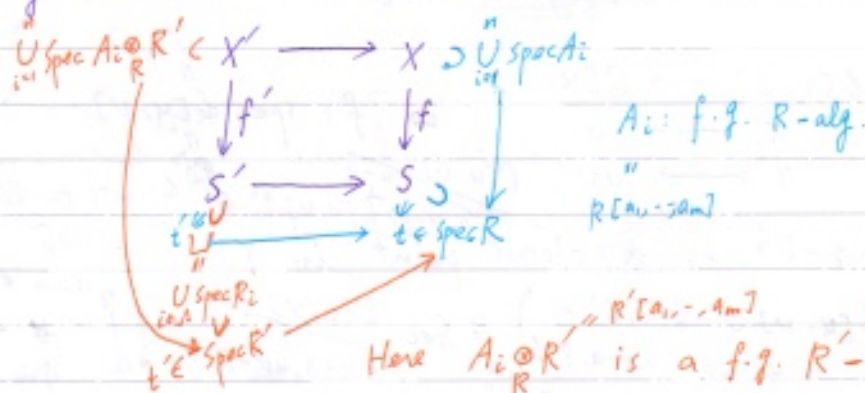 n
∪ Spec Ai ⊗_R R' ⊂ X' → X ⊃ ∪ Spec Ai
i=1
↓ f' ↓ f
Ai : f.g. R-alg.
"
R[a1, -, am]
S' → S
t' ∈ U → t ∈ Spec R
"
∪ Spec Ri
i∈Λ
∪
t' ∈ Spec R'
R'[a1, -, am]
Here Ai ⊗_R R' is a f.g. R'-